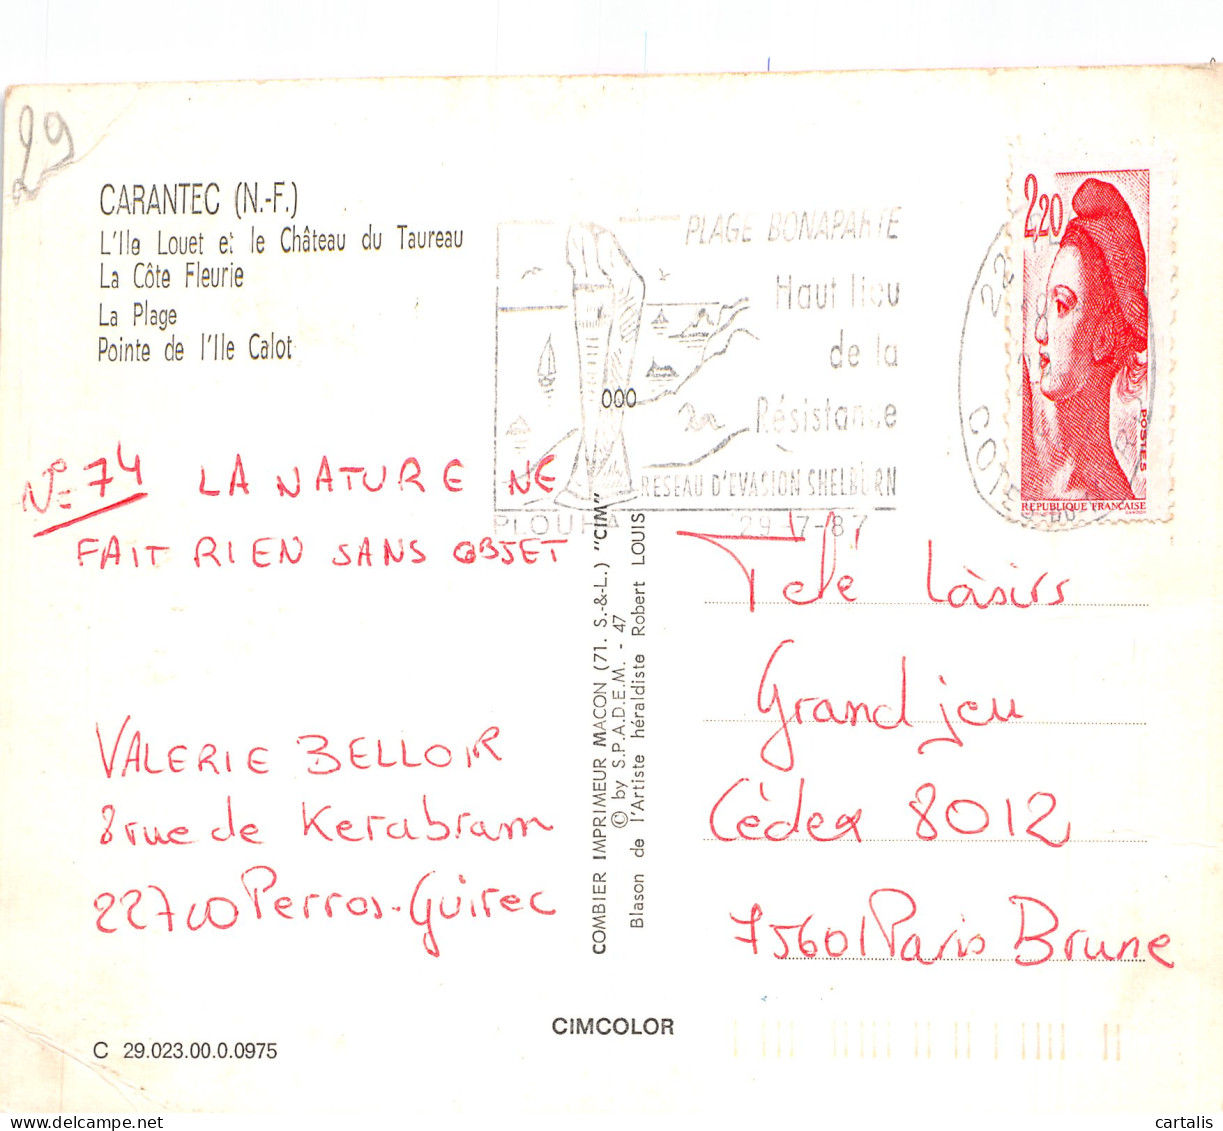 29
CARANTEC (N.-F.)
L'Ile Louet et le Château du Taureau
La Côte Fleurie
La Plage
Pointe de l'Ile Calot
PLAGE BONAPARTE
Haut lieu
de la
Résistance
RESEAU D'EVASION SHELBURN
PLOUHA
29-7-87
000
22
COTES
2,20
POSTES
REPUBLIQUE FRANÇAISE
N° 74 LA NATURE NE
FAIT RIEN SANS OBJET
VALERIE BELLOIR
8 rue de Kerabram
22700 Perros-Guirec
COMBIER IMPRIMEUR MACON (71. S.-&-L.) "CIM"
© by S.P.A.D.E.M. - 47
Blason de l'Artiste héraldiste Robert LOUIS
Tele Loisirs
Grand jeu
Cédex 8012
75601 Paris Brune
CIMCOLOR
C 29.023.00.0.0975
vieux-papiers.delcampe.net
cartalis